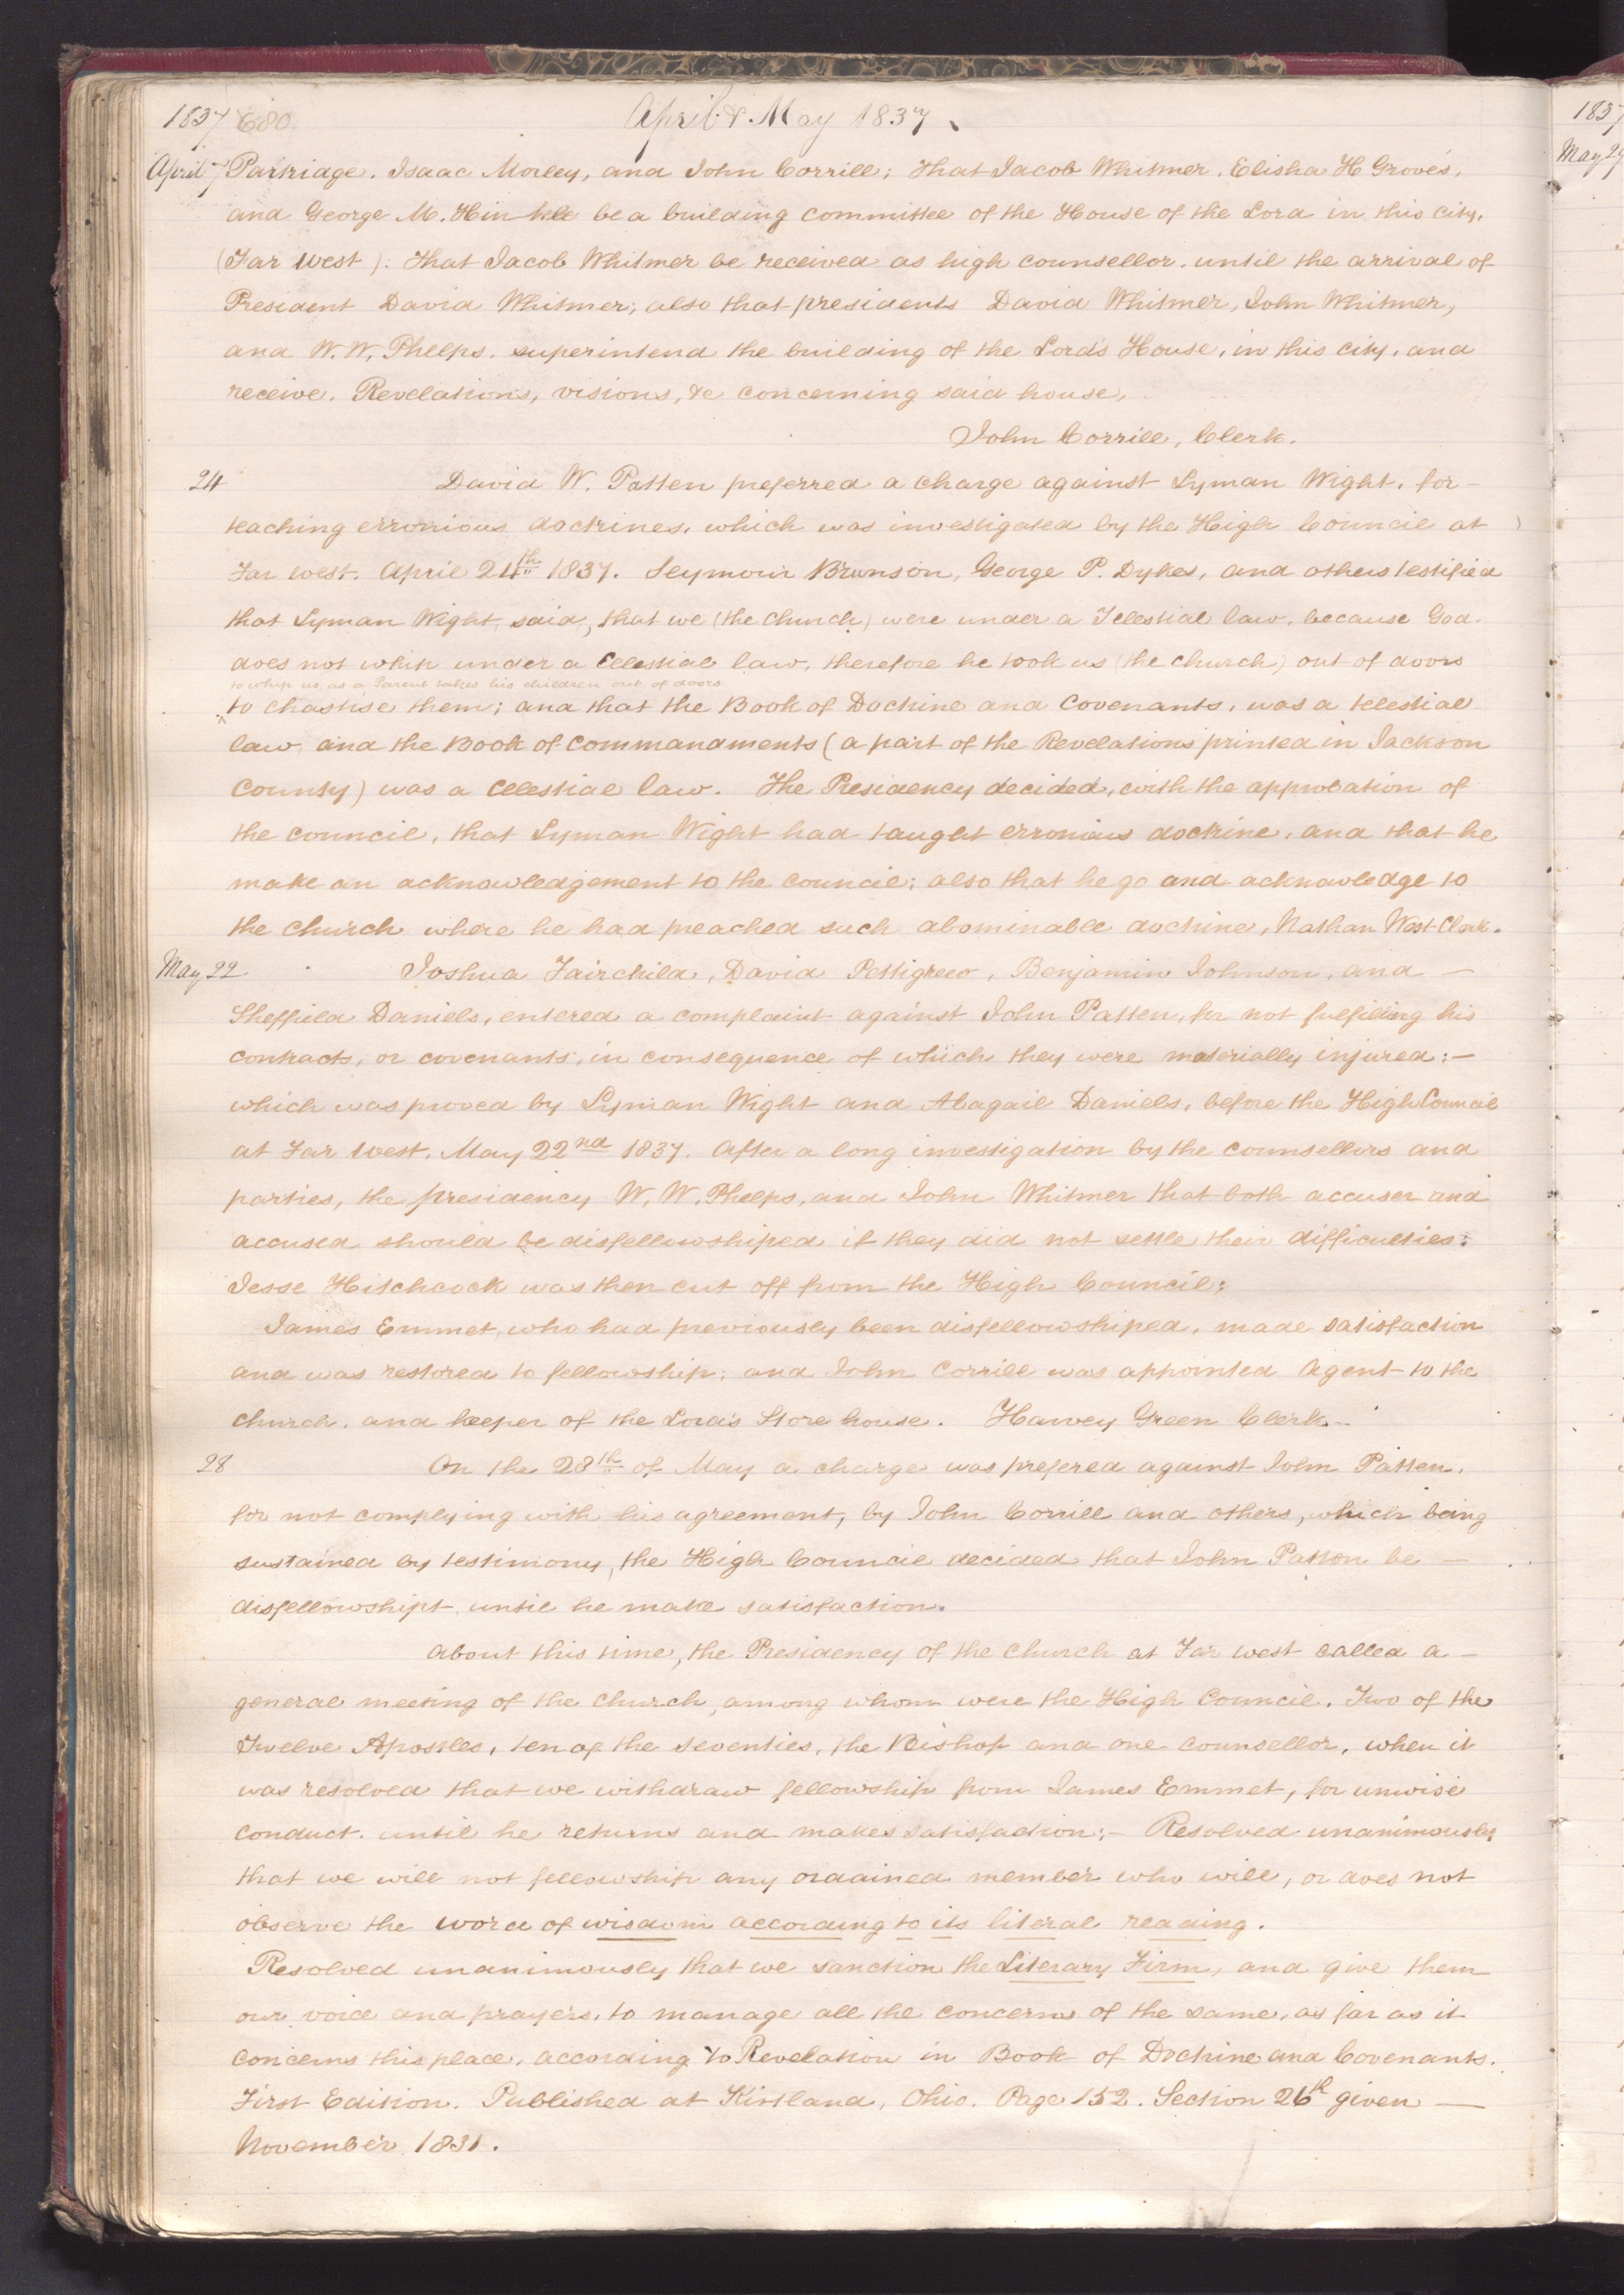 1837 680 April & May 1837.
April 7 Partridge. Isaac Morley, and John Corrill; that Jacob Whitmer. Elisha H Groves,
and George M. Hinkle be a building committee of the House of the Lord in this city,
(Far West): that Jacob Whitmer be received as high counsellor. until the arrival of
President David Whitmer; also that presidents David Whitmer, John Whitmer,
and W. W. Phelps. superintend the building of the Lord's House, in this city, and
receive. Revelations, visions, &c concerning said house,
John Corrill, Clerk.
24 David W. Patten preferred a charge against Lyman Wight, for-
teaching erronious doctrines, which was investigated by the High Council at
Far West. April 24th 1837. Seymour Brunson, George P. Dykes, and others testified
that Lyman Wight said, that we (the church) were under a Telestial law, because God
does not whip under a Celestial law, therefore he took us (the church) out of doors
to whip us as a Parent takes his children out of doors
^to chastise them; and that the Book of Doctrine and Covenants, was a telestial
law, and the Book of Commandments (a part of the Revelations printed in Jackson
County) was a Celestial law. The Presidency decided, with the approbation of
the council, that Lyman Wight had taught erronious doctrine, and that he
make an acknowledgement to the council; also that he go and acknowledge to
the church where he had preached such abominable doctrine, Nathan West Clerk.
May 22 Joshua Fairchild, David Pettigrew, Benjamin Johnson, and —
Sheffield Daniels, entered a complaint against John Patten, for not fulfilling his
contracts, or covenants, in consequence of which they were materially injured:—
which was proved by Lyman Wight and Abagail Daniels, before the High Council
at Far West, May 22nd 1837. After a long investigation by the counsellors and
parties, the presidency W. W. Phelps, and John Whitmer that both accuser and
accused should be disfellowshiped if they did not settle their difficulties:
Jesse Hitchcock was then cut off from the High Council;
James Emmet, who had previously been disfellowshiped, made satisfaction
and was restored to fellowship; and John Corrill was appointed Agent to the
church, and keeper of the Lord's Store house. Harvey Green Clerk.
28 On the 28th of May a charge was prefered against John Patten,
for not complying with his agreement, by John Corrill and others, which being
sustained by testimony, the High Council decided that John Patton be —
disfellowshipt until he make satisfaction.
About this time, the Presidency of the church at Far West called a —
general meeting of the church, among whom were the High Council. Two of the
Twelve Apostles, ten of the seventies, the Bishop and one counsellor, when it
was resolved that we withdraw fellowship from James Emmet, for unwise
conduct. until he returns and makes satisfaction;- Resolved unanimously
that we will not fellowship any ordained member who will, or does not
observe the word of wisdom according to its literal reading.
Resolved unanimously that we sanction the Literary Firm, and give them
our voice and prayers, to manage all the concerns of the same, as far as it
concerns this place, according to Revelation in Book of Doctrine and Covenants.
First Edition. Published at Kirtland, Ohio. Page 152. Section 26th given —
November 1831.
1837
May 29